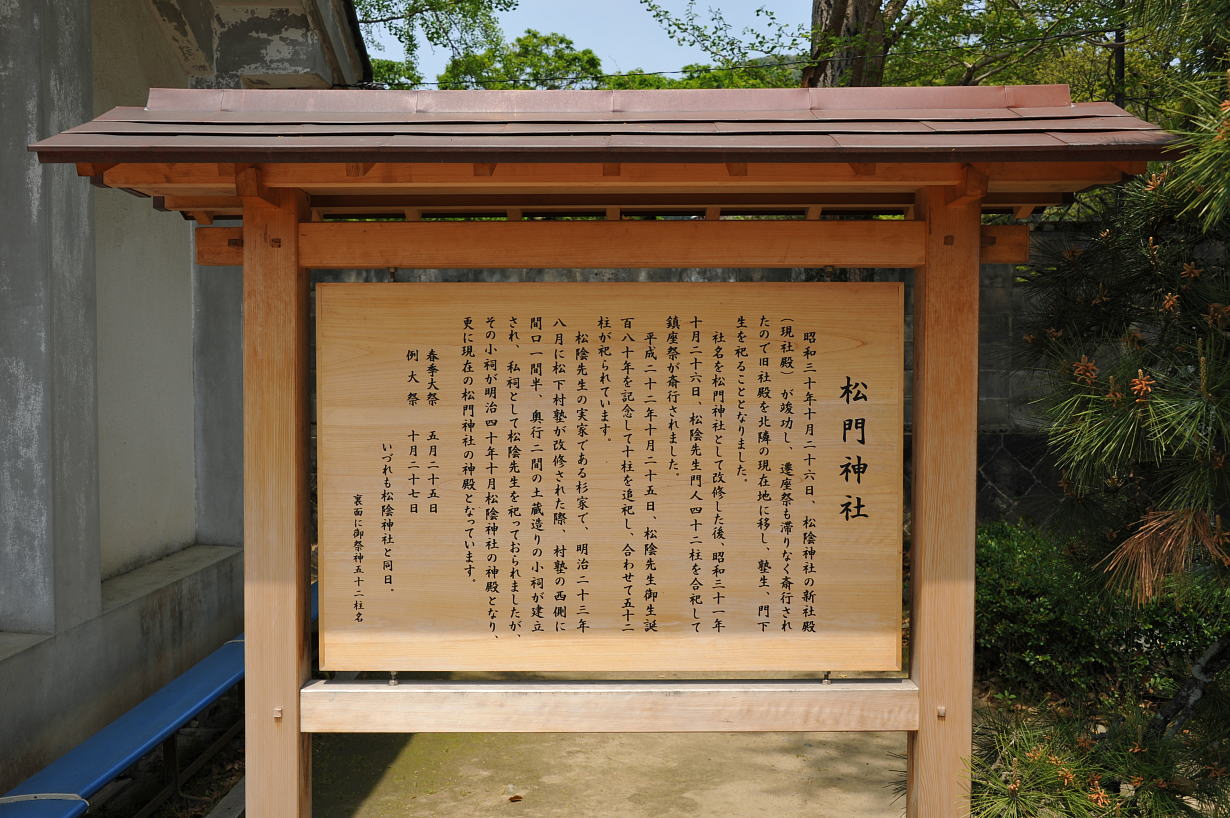 松門神社
昭和三十年十月二十六日、松陰神社の新社殿
(現社殿)が竣功し、遷座祭も滞りなく斎行され
たので旧社殿を北隣の現在地に移し、塾生、門下
生を祀ることとなりました。
社名を松門神社として改修した後、昭和三十一年
十月二十六日、松陰先生門人四十二柱を合祀して
鎮座祭が斎行されました。
平成二十二年十月二十五日、松陰先生御生誕
百八十年を記念して十柱を追祀し、合わせて五十二
柱が祀られています。
松陰先生の実家である杉家で、明治二十三年
八月に松下村塾が改修された際、村塾の西側に
間口一間半、奥行二間の土蔵造りの小祠が建立
され、私祠として松陰先生を祀っておられましたが、
その小祠が明治四十年十月松陰神社の神殿となり、
更に現在の松門神社の神殿となっています。
春季大祭 五月二十五日
例大祭 十月二十七日
いづれも松陰神社と同日。
裏面に御祭神五十二柱名